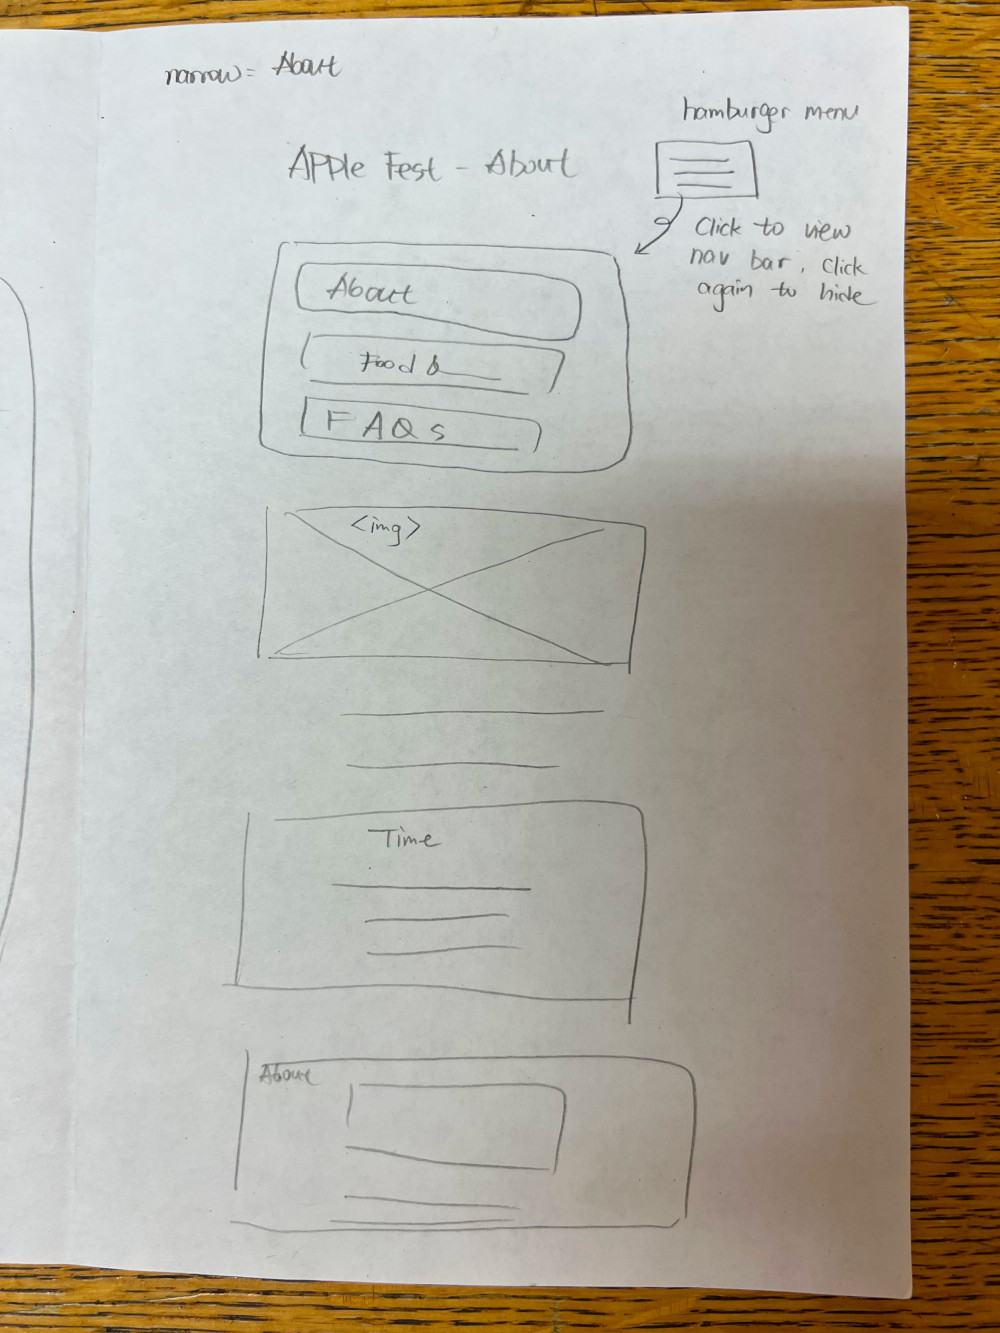 narrow = About
hamburger menu
Apple Fest - About
Click to view
nav bar, click
again to hide
About
Food &
FAQs
<img>
Time
About